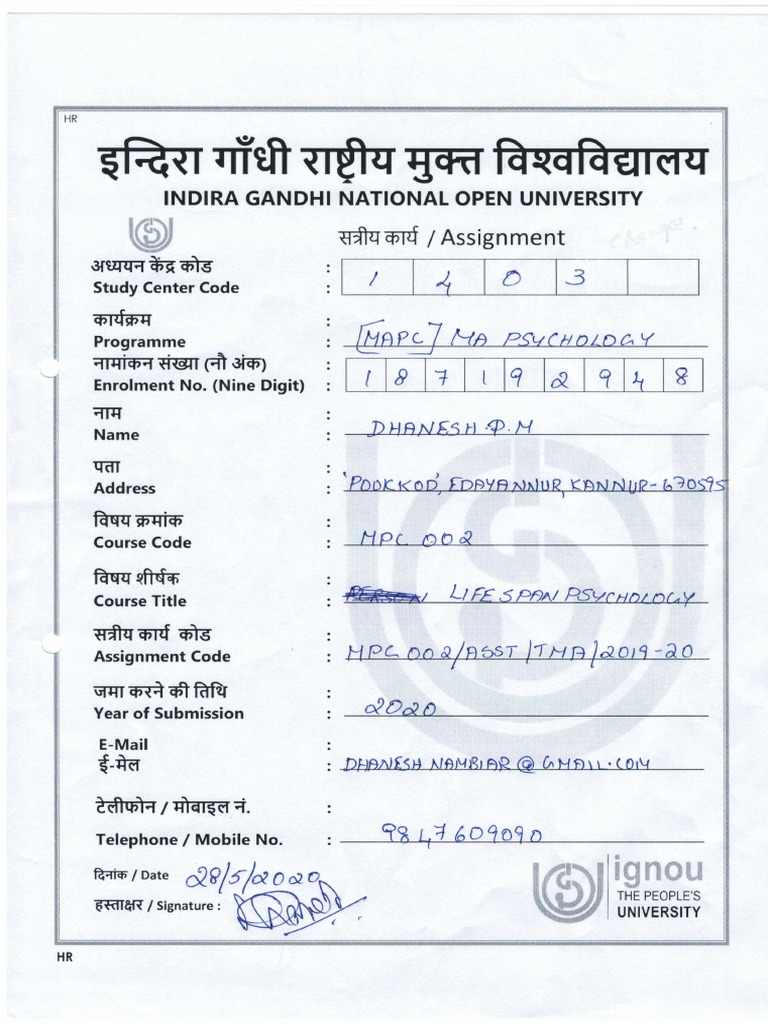 HR
इन्दिरा गाँधी राष्ट्रीय मुक्त विश्वविद्यालय
INDIRA GANDHI NATIONAL OPEN UNIVERSITY
सत्रीय कार्य / Assignment
Change.
अध्ययन केंद्र कोड :
Study Center Code : 1 4 0 3
कार्यक्रम :
Programme : [MAPC] MA PSYCHOLOGY
नामांकन संख्या (नौ अंक) :
Enrolment No. (Nine Digit) : 187192948
नाम :
Name : DHANESH.P.M
पता :
Address : 'POOKKOD', EDAYANNUR, KANNUR-670595
विषय क्रमांक :
Course Code : MPC 002
विषय शीर्षक :
Course Title : LIFE SPAN PSYCHOLOGY
सत्रीय कार्य कोड :
Assignment Code : MPC 002/ASST/TMA/2019-20
जमा करने की तिथि :
Year of Submission : 2020
E-Mail :
ई-मेल : DHANESHNAMBIAR@GMAIL.COM
टेलीफोन / मोबाइल नं. :
Telephone / Mobile No. : 9847609090
दिनांक / Date 28/5/2020
हस्ताक्षर / Signature :
ignou
THE PEOPLE'S
UNIVERSITY
HR